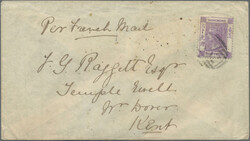 Per French Mail
F G Raggett Esqr
Temple Ewell
Nr Dover
Kent